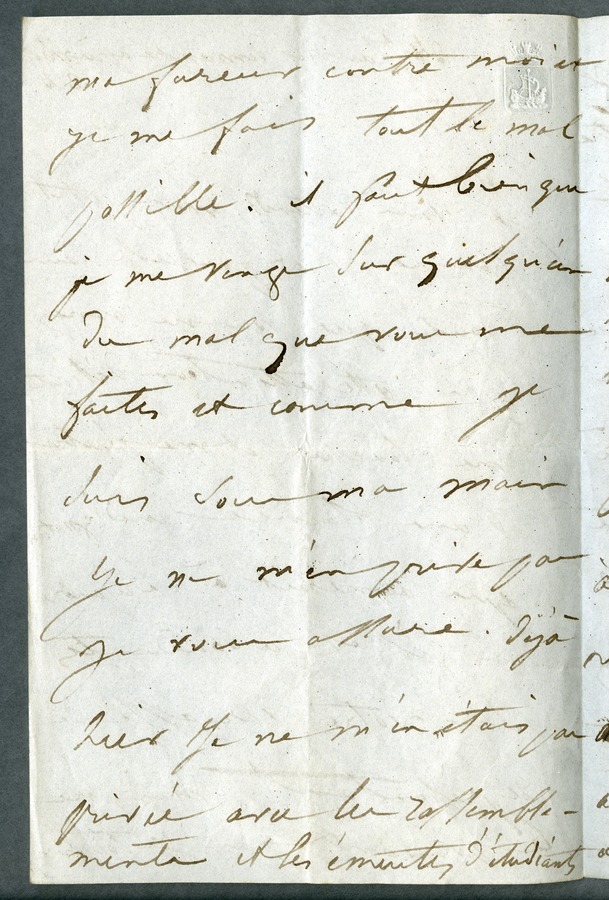 ma fureur contre moi et
je me fais tout le mal
possible. il faut bien que
je me venge sur quelqu'un
du mal que vous me
faites et comme je
suis sous ma main
je ne m'en prive pas
je vous assure. déjà
hier je ne m'en étais pas
privée avec les rassemble-
ments et les émeutes d'étudiants